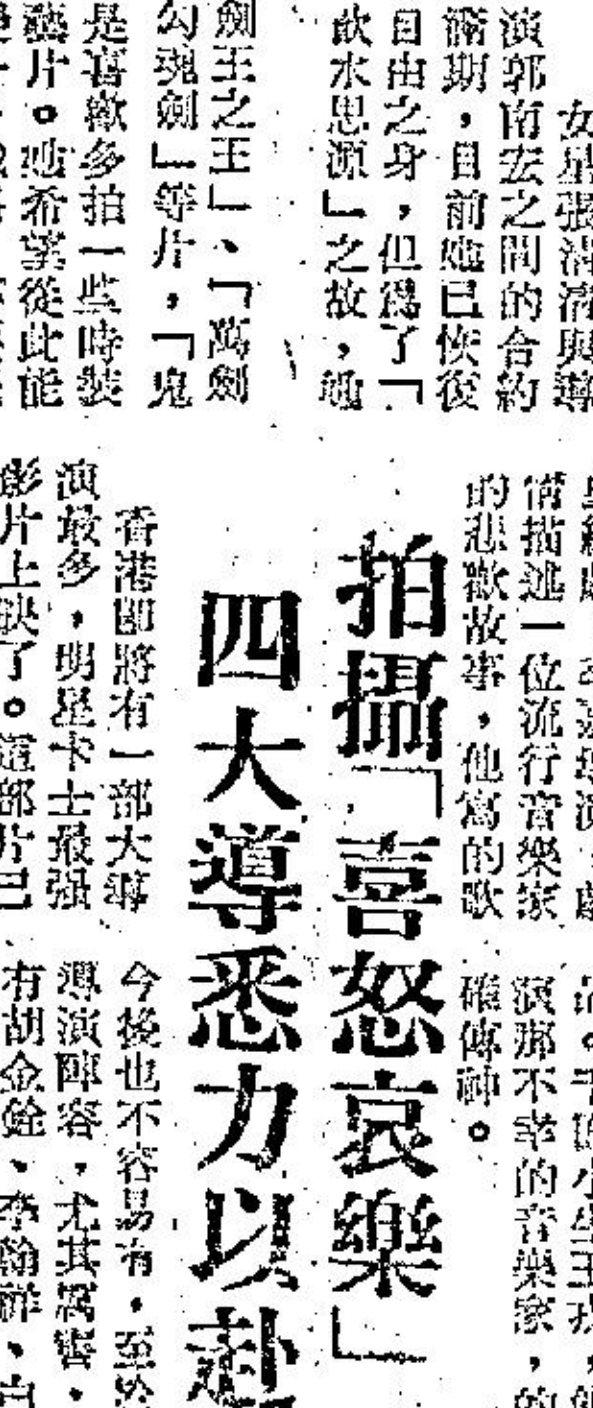 女星張清清與導
演郭南宏之間的合約
滿期，目前她已恢復
自由之身，但爲了「
飲水思源」之故，她
劍王之王」、「萬劍
勾魂劍」等片，「鬼
是喜歡多拍一些時裝
藝片。她希望從此能
情描述一位流行音樂家
的悲歡故事，他寫的歌
拍攝「喜怒哀樂」
四大導悉力以赴
香港卽將有一部大導
演最多，明星卡士最强
影片上映了。這部片已
演那不幸的音樂家，的
確傳神。
今後也不容易有，至於
導演陣容，尤其厲害，
有胡金銓、李翰祥、白